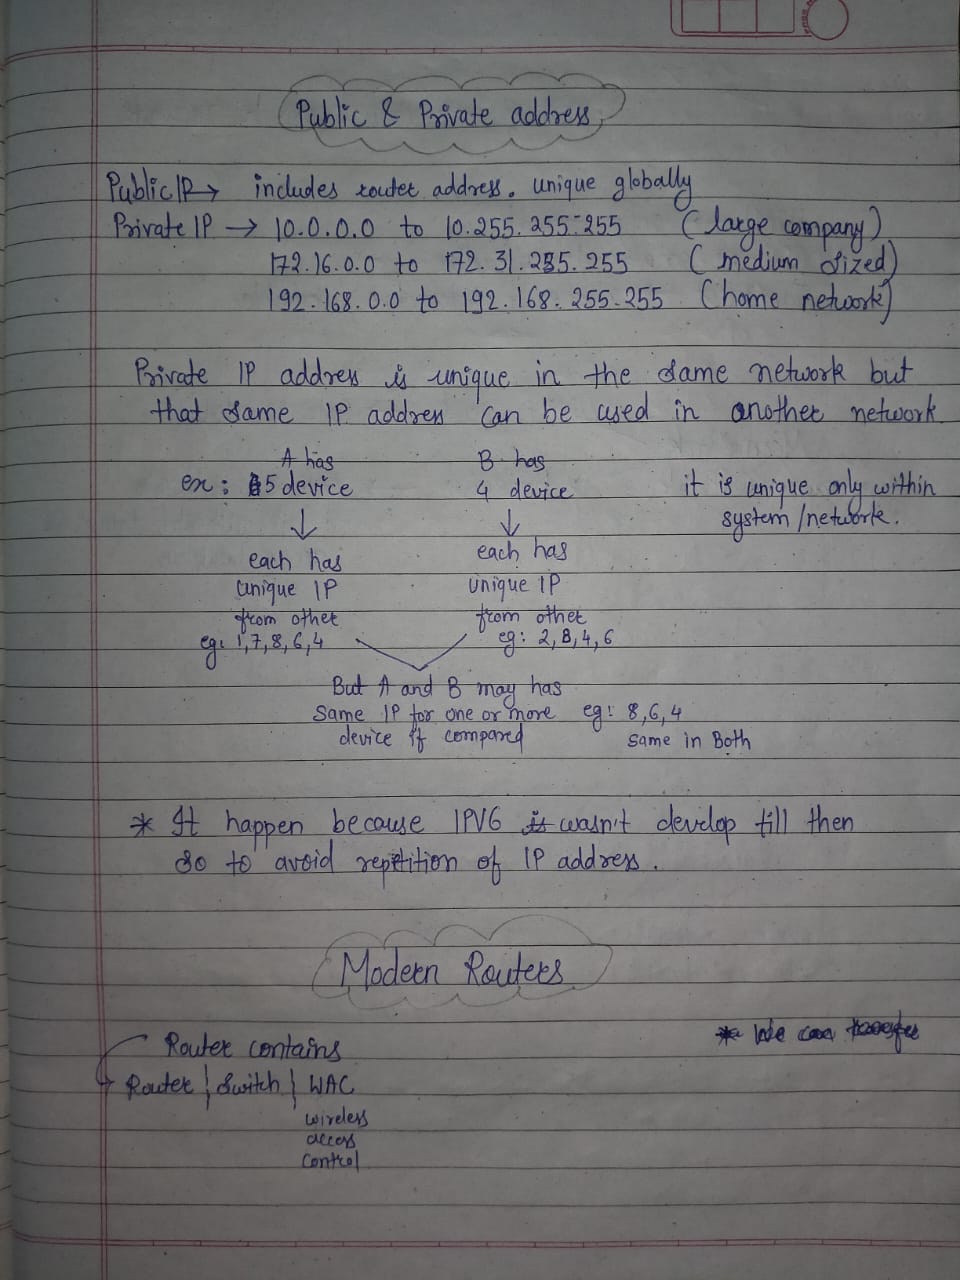 Public & Private address
Public IP → includes router address. unique globally
Private IP → 10.0.0.0 to 10.255.255.255 (large company)
172.16.0.0 to 172.31.255.255 (medium sized)
192.168.0.0 to 192.168.255.255 (home network)
Private IP address is unique in the same network but
that same IP address can be used in another network.
A has B has
ex: 5 device 4 device it is unique only within
system/network.
↓ ↓
each has each has
unique IP unique IP
from other from other
eg: 1,7,8,6,4 eg: 2,8,4,6
But A and B may has
same IP for one or more eg: 8,6,4
device if compared same in Both
* It happen because IPV6 is wasn't develop till then
so to avoid repetition of IP address.
Modern Routers
* We can
Router contains
Router | Switch | WAC
wireless
access
control